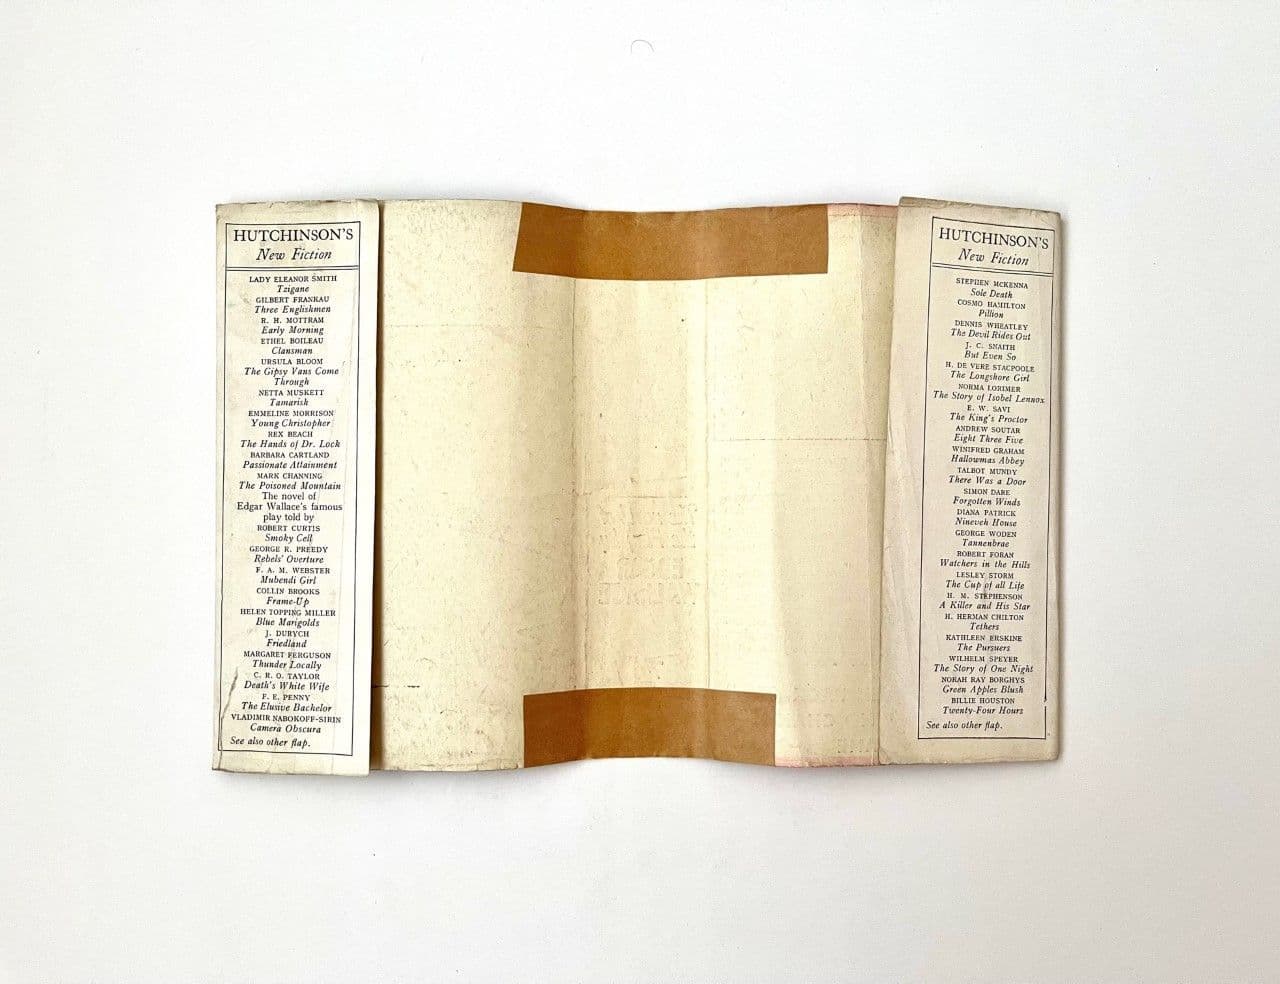 HUTCHINSON'S
New Fiction
LADY ELEANOR SMITH
Tzigane
GILBERT FRANKAU
Three Englishmen
R. H. MOTTRAM
Early Morning
ETHEL BOILEAU
Clansman
URSULA BLOOM
The Gipsy Vans Come
Through
NETTA MUSKETT
Tamarisk
EMMELINE MORRISON
Young Christopher
REX BEACH
The Hands of Dr. Lock
BARBARA CARTLAND
Passionate Attainment
MARK CHANNING
The Poisoned Mountain
The novel of
Edgar Wallace's famous
play told by
ROBERT CURTIS
Smoky Cell
GEORGE R. PREEDY
Rebels' Overture
F. A. M. WEBSTER
Mubendi Girl
COLLIN BROOKS
Frame-Up
HELEN TOPPING MILLER
Blue Marigolds
J. DURYCH
Friedland
MARGARET FERGUSON
Thunder Locally
C. R. O. TAYLOR
Death's White Wife
F. E. PENNY
The Elusive Bachelor
VLADIMIR NABOKOFF-SIRIN
Camera Obscura
See also other flap.
HUTCHINSON'S
New Fiction
STEPHEN MCKENNA
Sole Death
COSMO HAMILTON
Pillion
DENNIS WHEATLEY
The Devil Rides Out
J. C. SNAITH
But Even So
H. DE VERE STACPOOLE
The Longshore Girl
NORMA LORIMER
The Story of Isobel Lennox
E. W. SAVI
The King's Proctor
ANDREW SOUTAR
Eight Three Five
WINIFRED GRAHAM
Hallowmas Abbey
TALBOT MUNDY
There Was a Door
SIMON DARE
Forgotten Winds
DIANA PATRICK
Nineveh House
GEORGE WODEN
Tannenbrae
ROBERT FORAN
Watchers in the Hills
LESLEY STORM
The Cup of all Life
H. M. STEPHENSON
A Killer and His Star
H. HERMAN CHILTON
Tethers
KATHLEEN ERSKINE
The Pursuers
WILHELM SPEYER
The Story of One Night
NORAH RAY BORGHYS
Green Apples Blush
BILLIE HOUSTON
Twenty-Four Hours
See also other flap.